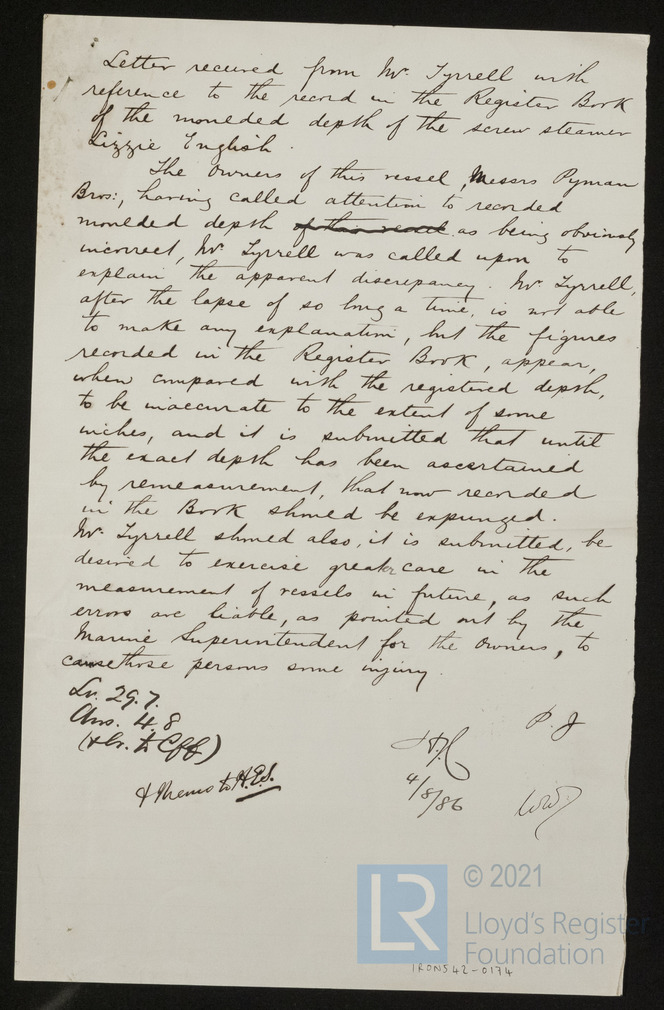 Letter received from Mr. Tyrrell with
reference to the record in the Register Book
of the moulded depth of the screw steamer
Lizzie English.
The Owners of this vessel, Messrs Pyman
Bros:, having called attention to recorded
moulded depth of their vessel as being obviously
incorrect, Mr. Tyrrell was called upon to
explain the apparent discrepancy. Mr. Tyrrell,
after the lapse of so long a time, is not able
to make any explanation, but the figures
recorded in the Register Book, appear,
when compared with the registered depth,
to be inaccurate to the extent of some
inches, and it is submitted that until
the exact depth has been ascertained
by remeasurement, that now recorded
in the Book should be expunged.
Mr. Tyrrell should also, it is submitted, be
desired to exercise greater care in the
measurement of vessels in future, as such
errors are liable, as pointed out by the
Marine Superintendent for the Owners, to
cause those persons some injury.
Lr. 29.7.
Ans. 4.8
P. J
& Memo to H.E.S.
4/8/86
LR
© 2021
Lloyd's Register
Foundation
IRON542-0174